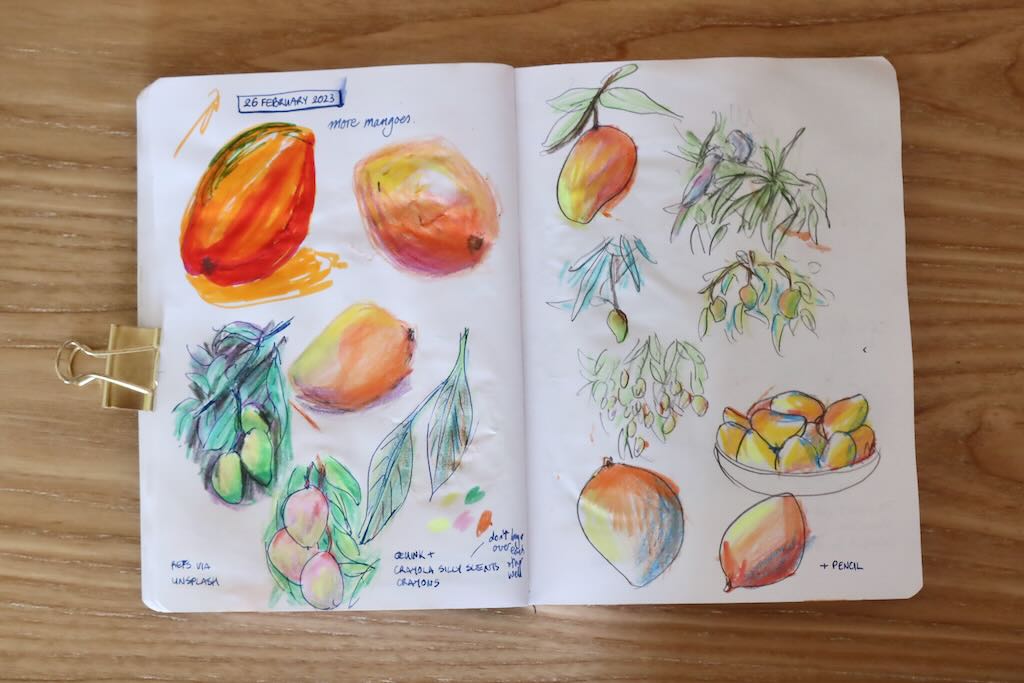 26 FEBRUARY 2023
more mangoes.
REFS VIA
UNSPLASH
GELINK +
CRAYOLA SILLY SCENTS
CRAYONS
don't layer
over each
other
well
+ PENCIL